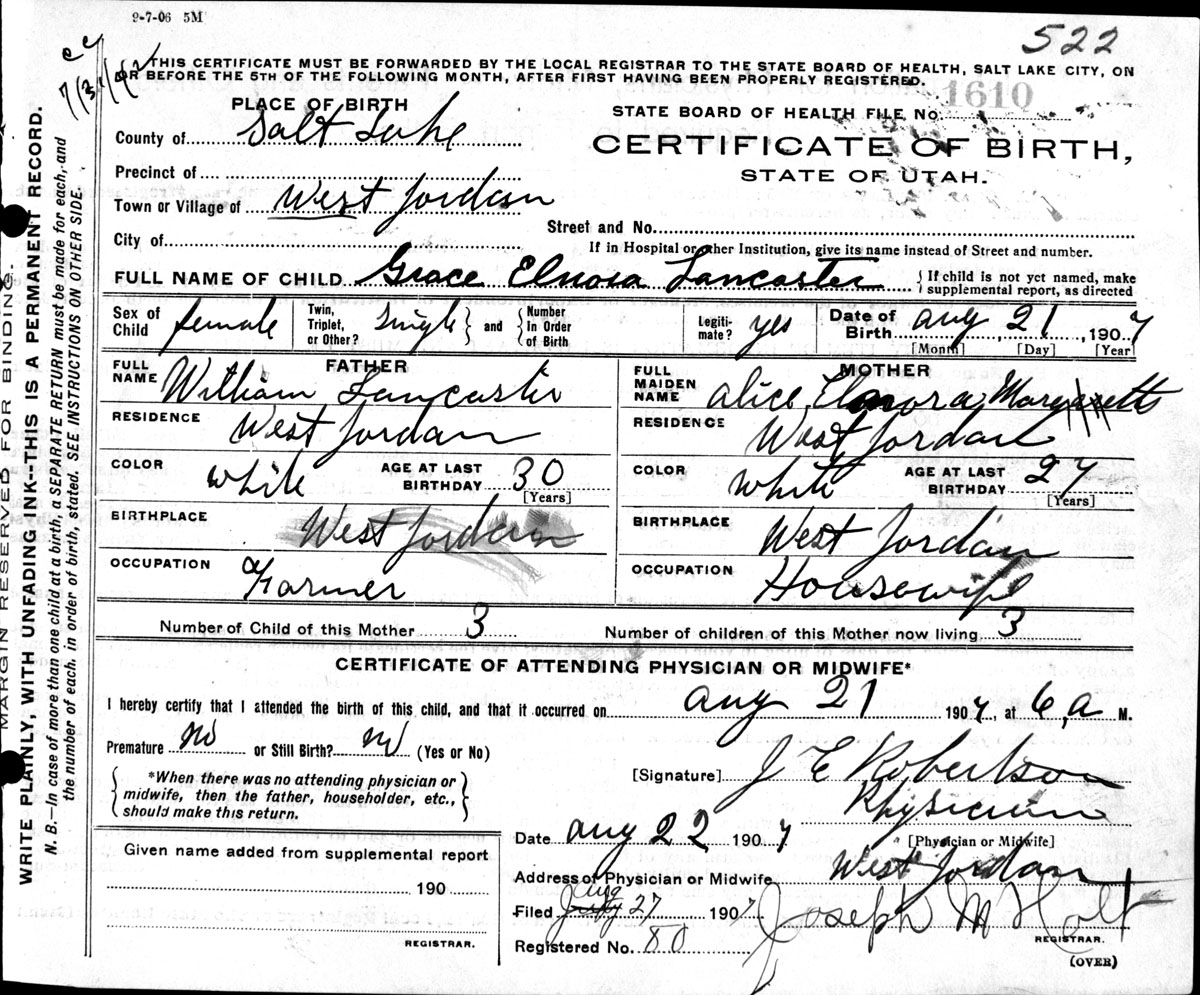 9-7-06 5M
522
THIS CERTIFICATE MUST BE FORWARDED BY THE LOCAL REGISTRAR TO THE STATE BOARD OF HEALTH, SALT LAKE CITY, ON
OR BEFORE THE 5TH OF THE FOLLOWING MONTH, AFTER FIRST HAVING BEEN PROPERLY REGISTERED.
MARGIN RESERVED FOR BINDING.
WRITE PLAINLY, WITH UNFADING INK--THIS IS A PERMANENT RECORD.
N. B.—In case of more than one child at a birth, a SEPARATE RETURN must be made for each, and
the number of each, in order of birth, stated. SEE INSTRUCTIONS ON OTHER SIDE.
PLACE OF BIRTH
County of Salt Lake
Precinct of
Town or Village of West Jordan
City of
STATE BOARD OF HEALTH FILE No. 1610
CERTIFICATE OF BIRTH,
STATE OF UTAH.
Street and No.
If in Hospital or other Institution, give its name instead of Street and number.
FULL NAME OF CHILD Grace Elnora Lancaster {If child is not yet named, make
supplemental report, as directed
Sex of Child female Twin, Triplet, or Other? Single } and { Number In Order of Birth Legiti-mate? yes Date of Birth Aug 21, 1907
[Month] [Day] [Year]
FATHER
FULL NAME William Lancaster
RESIDENCE West Jordan
COLOR white AGE AT LAST BIRTHDAY 30
[Years]
BIRTHPLACE West Jordan
OCCUPATION Farmer
MOTHER
FULL MAIDEN NAME Alice Elnora Margaretts
RESIDENCE West Jordan
COLOR white AGE AT LAST BIRTHDAY 27
[Years]
BIRTHPLACE West Jordan
OCCUPATION Housewife
Number of Child of this Mother 3 Number of children of this Mother now living 3
CERTIFICATE OF ATTENDING PHYSICIAN OR MIDWIFE*
I hereby certify that I attended the birth of this child, and that it occurred on Aug 21 1907, at 6, a M.
Premature No or Still Birth? No (Yes or No)
{ *When there was no attending physician or
midwife, then the father, householder, etc.,
should make this return. }
[Signature] J E Robertson
Physician
[Physician or Midwife]
Date Aug 22 1907
Address of Physician or Midwife West Jordan
Filed Aug 27 1907 Joseph M Holt
REGISTRAR.
Registered No. 80
(OVER)
Given name added from supplemental report
190
REGISTRAR.